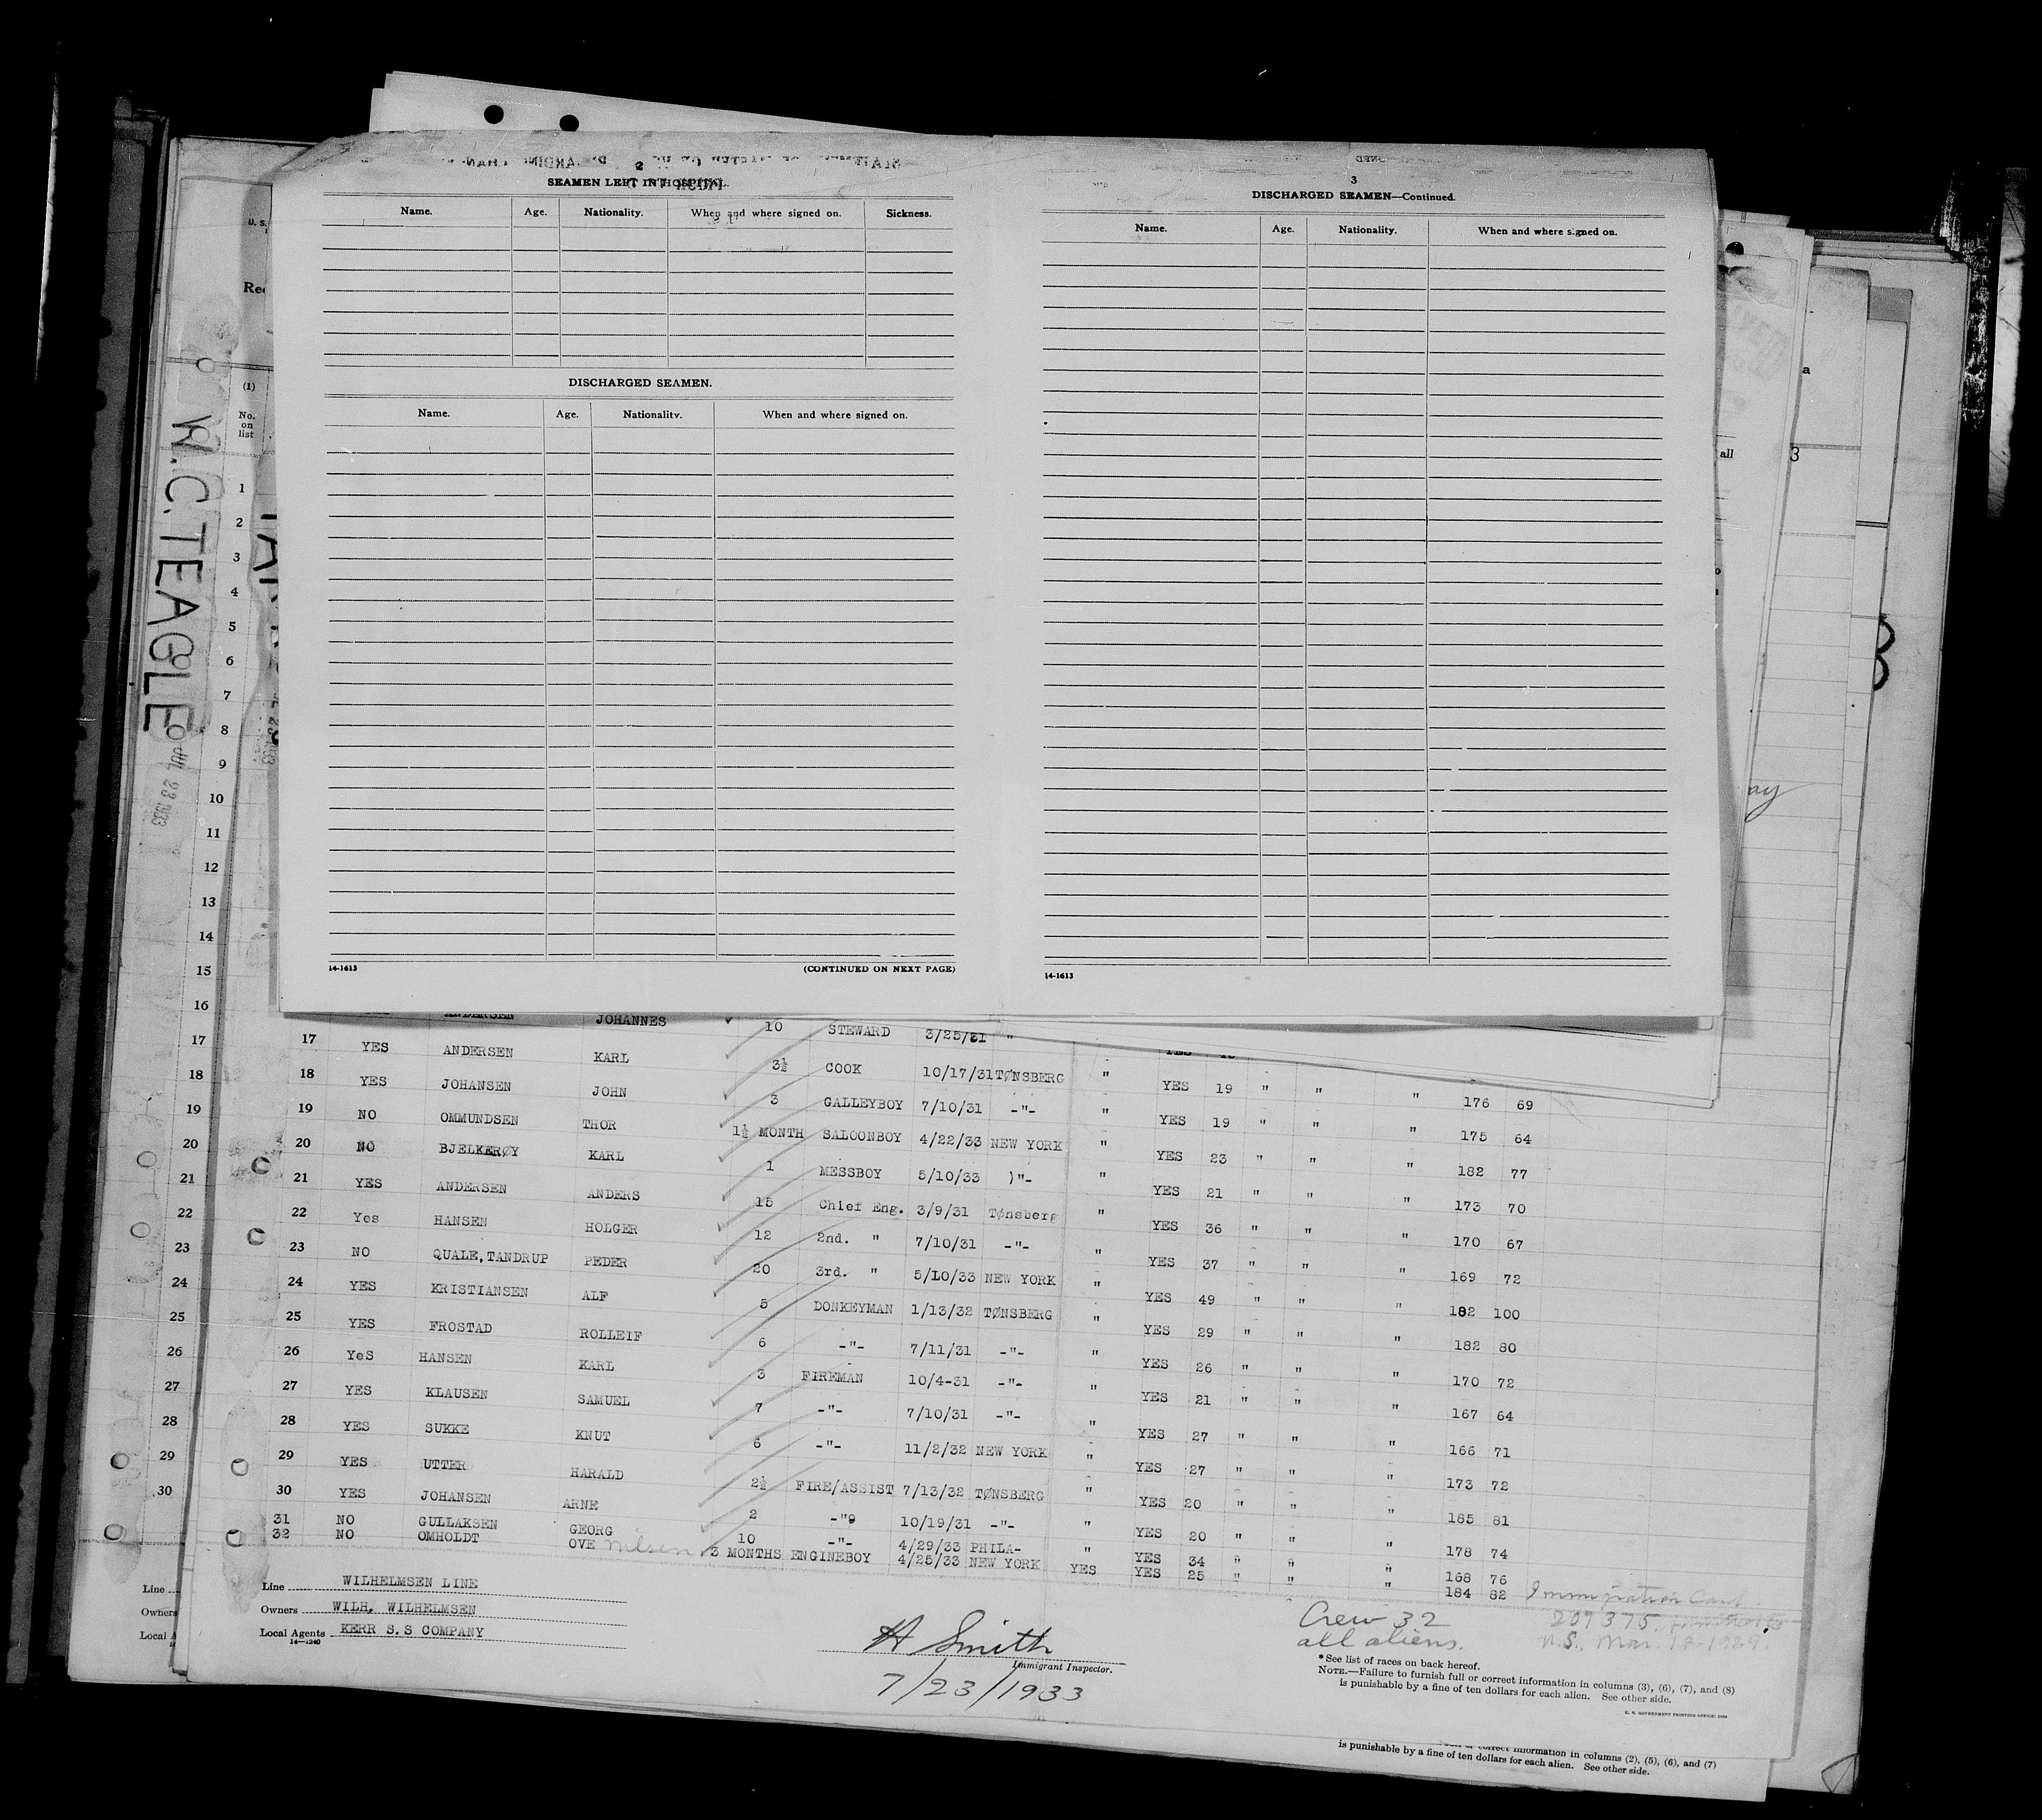 2
SEAMEN LEFT IN HOSPITAL.
Name. Age. Nationality. When and where signed on. Sickness.
DISCHARGED SEAMEN.
Name. Age. Nationality. When and where signed on.
14-1613 (CONTINUED ON NEXT PAGE)
3
DISCHARGED SEAMEN—Continued.
Name. Age. Nationality. When and where signed on.
14-1613
U. S.
(1)
No.
on
list
W.C. TEAGLE
JUL 23 1933
1
2
3
4
5
6
7
8
9
10
11
12
13
14
15
16
17
18
19
20
21
22
23
24
25
26
27
28
29
30
all
ay
ANDERSEN JOHANNES 10 STEWARD 3/25/31 "
17 YES ANDERSEN KARL 3½ COOK 10/17/31 TØNSBERG " YES 19 " " " 176 69
18 YES JOHANSEN JOHN 3 GALLEYBOY 7/10/31 -"- " YES 19 " " " 175 64
19 NO OMMUNDSEN THOR 1½ MONTH SALOONBOY 4/22/33 NEW YORK " YES 23 " " " 182 77
20 NO BJELKERØY KARL 1 MESSBOY 5/10/33 )"- " YES 21 " " " 173 70
21 YES ANDERSEN ANDERS 15 Chief Eng. 3/9/31 Tønsberg " YES 36 " " " 170 67
22 Yes HANSEN HOLGER 12 2nd. " 7/10/31 -"- " YES 37 " " " 169 72
23 NO QUALE,TANDRUP PEDER 20 3rd. " 5/10/33 NEW YORK " YES 49 " " " 182 100
24 YES KRISTIANSEN ALF 5 DONKEYMAN 1/13/32 TØNSBERG " YES 29 " " " 182 80
25 YES FROSTAD ROLLEIF 6 -"- 7/11/31 -"- " YES 26 " " " 170 72
26 YeS HANSEN KARL 3 FIREMAN 10/4-31 -"- " YES 21 " " " 167 64
27 YES KLAUSEN SAMUEL 7 -"- 7/10/31 -"- " YES 27 " " " 166 71
28 YES SUKKE KNUT 6 -"- 11/2/32 NEW YORK " YES 27 " " " 173 72
29 YES UTTER HARALD 2½ FIRE/ASSIST 7/13/32 TØNSBERG " YES 20 " " " 185 81
30 YES JOHANSEN ARNE 2 -"9 10/19/31 -"- " YES 20 " " " 178 74
31 NO GULLAKSEN GEORG 10 -"- 4/29/33 PHILA- " YES 34 " " " 168 76
32 NO OMHOLDT OVE Nilsen 3 MONTHS ENGINEBOY 4/25/33 NEW YORK YES YES 25 " " " 184 82 Immigration Card
207375
N.S. Mar. 18-1929.
Line WILHELMSEN LINE
Owners WILH. WILHELMSEN
Local Agents KERR S.S COMPANY
14-1240
Line
Owners
Local A
H Smith
Immigrant Inspector.
7/23/1933
Crew 32
all aliens.
*See list of races on back hereof.
NOTE.—Failure to furnish full or correct information in columns (3), (6), (7), and (8)
is punishable by a fine of ten dollars for each alien. See other side.
U. S. GOVERNMENT PRINTING OFFICE:
correct information in columns (2), (5), (6), and (7)
is punishable by a fine of ten dollars for each alien. See other side.